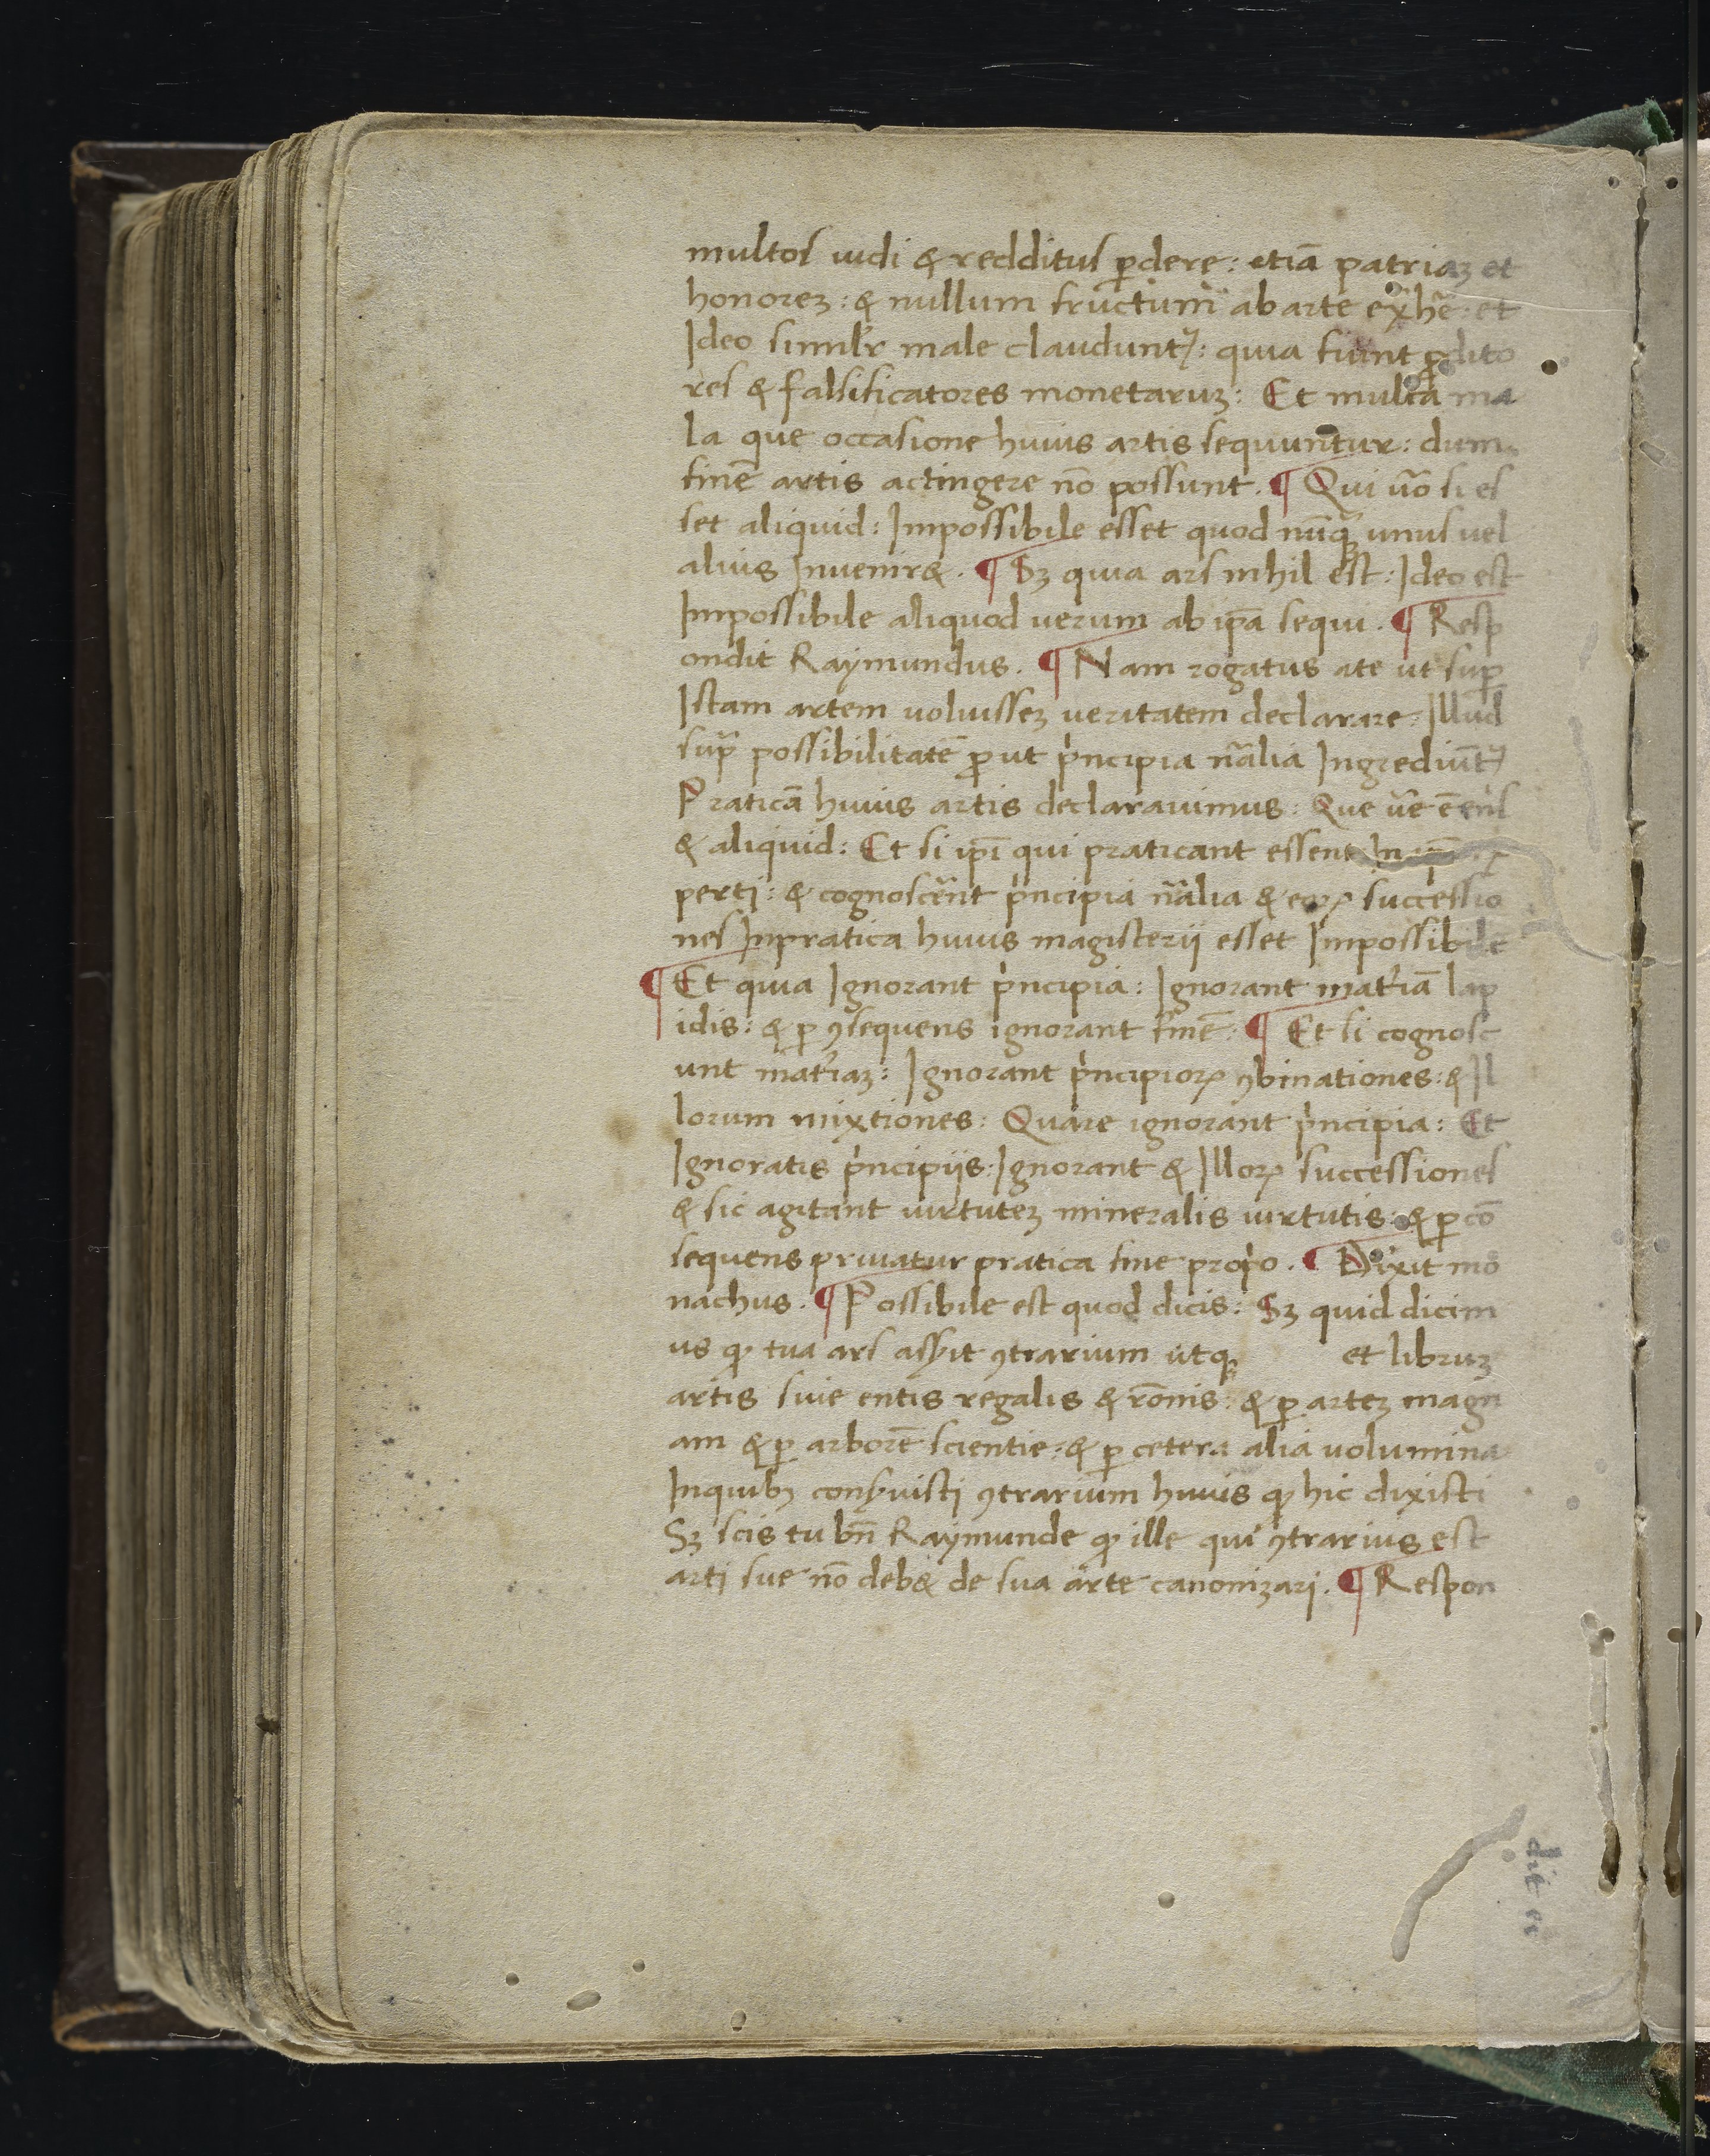 multos uidi & redditus ꝑdere: etiā patriaꝫ et
honoreꝫ: & nullum fructum ab arte exhēᷓ: et
Ideo simil'r male claudunt᷑: quia fiunt ꝓdito
res & falsificatores monetaruꝫ: Et multa ma
la que occasione huius artis sequuntur: dum
finē artis actingere nō possunt. ¶ Qui u͂o si es
set aliquid: Impossibile esset quod nūqꝫ unus uel
alius Inuenir&. ¶ Sꝫ quia ars nihil est: Ideo est
Impossibile aliquod uerum ab ip̄a sequi. ¶ Resp
ondit Raymundus. ¶ Nam rogatus a te ut suꝑ
Istam artem uoluisseꝫ ueritatem declarare: Illud
sup̃ possibilitatē ꝓut p'ncipia nãlia Ingrediūt᷑
Praticā huius artis declarauimus: Que u͂e ē ens
& aliquid: Et si ip̄i qui praticant essent In
perti: & cognosc̃ent p'ncipia nãlia & eoꝝ successio
nes In pratica huius magisterii esset Impossibile
¶ Et quia Ignorant p'ncipia: Ignorant mat'iā lap
idis: & ꝑ ꝯsequens ignorant finē: ¶ Et si cognosc
unt mat'iaꝫ: Ignorant p'ncipioꝝ ꝯbinationes: & Il
lorum mixtiones: Quare ignorant p'ncipia: Et
Ignoratis p'ncipiis: Ignorant & Illoꝝ successiones
& sic agitant uirtuteꝫ mineralis uirtutis: & ꝑ cō
sequens priuatur pratica fine prop'o. ¶ Dixit mo
nachus. ¶ Possibile est quod dicis: Sꝫ quid dicim
us ꝙ tua ars assẏit ꝯtrarium utqꝫ et libruꝫ
artis siue entis regalis & rōnis: & ꝑ arteꝫ magn
am & ꝑ arborē scientie: & ꝑ cetera alia uolumina
In quibꝫ consẏuisti ꝯtrarium huius ꝙ hic dixisti
Sꝫ scis tu bn̄ Raymunde ꝙ ille qui ꝯtrarius est
arti sue nō deb& de sua arte canonizari. ¶ Respon
dit